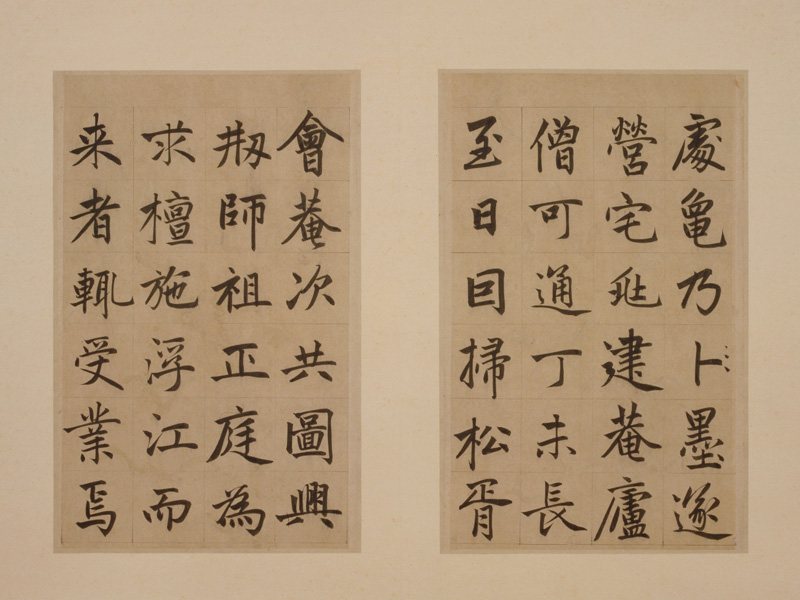 處龜乃卜墨遂
營宅兆建菴廬
僧可通丁未長
至日囙掃松胥
會菴次共圖興
刱師祖正庭為
求檀施浮江而
来者輒受業焉